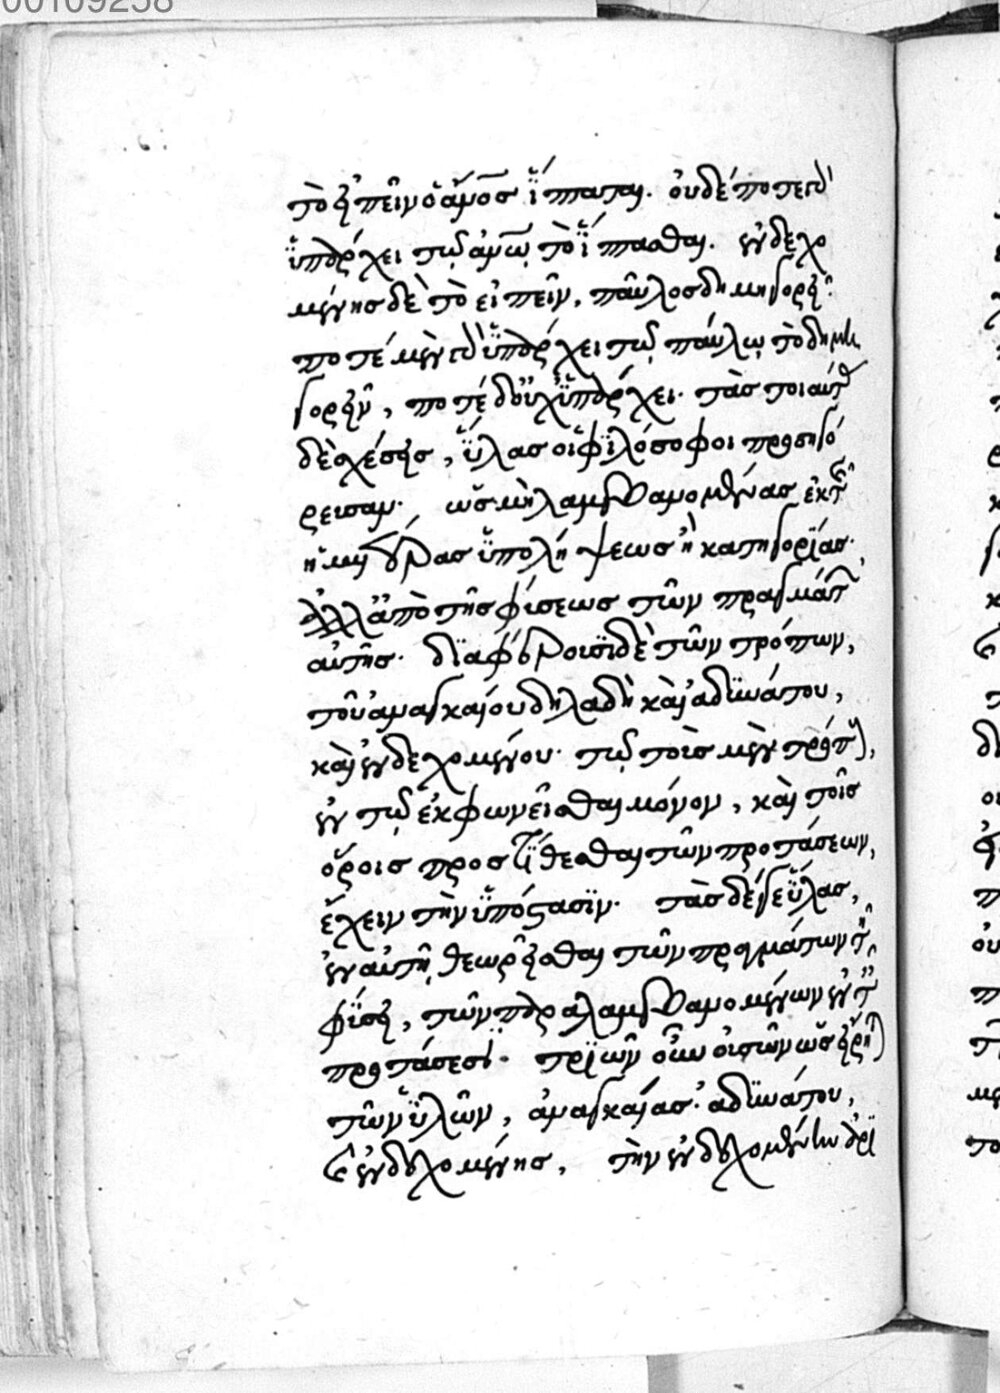 00109238
τὸ εἰπεῖν ὁ ἄνος ἵπταται. οὐδέποτε γὰρ
ὑπάρχει τῷ ἀνω τὸ ἵπτασθαι. ἐνδεχο
μένης δὲ τὸ εἰπεῖν, παῦλος δημηγορεῖ.
ποτὲ μὲν γὰρ ὑπάρχει τῷ παύλῳ τὸ δημη
γορεῖν, ποτὲ δ οὐχ ὑπάρχει. τὰς τοιαύτ
δὲ σχέσεις, ὕλας οἱ φιλόσοφοι προσηγό
ρευσαν. ὡς μὴ λαμβανομένας ἐκ τῆς
ἡμετέρας ὑπολήψεως ἢ κατηγορίας.
ἀλλ ἀπὸ τῆς φύσεως τῶν πραγμάτ
αὐτῆς. διαφέρουσι δὲ τῶν τρόπων,
τοῦ ἀναγκαίου δηλαδὴ καὶ ἀδυνάτου,
καὶ ἐνδεχομένου. τῷ τοὺς μὲν τρόπους,
ἐν τῷ ἐκφωνεῖσθαι μόνον, καὶ τοῖς
ὅροις προστίθεσθαι τῶν προτάσεων,
ἔχειν τὴν ὑπόστασιν. τὰς δέ γε ὕλας,
ἐν αὐτῇ θεωρεῖσθαι τῶν πραγμάτων τῇ
φύσει, τῶν παραλαμβανομένων ἐν τ
προτάσεσι. τριῶν οὖν οὐσῶν ὡς εἴρηται
τῶν ὑλῶν, ἀναγκαίας. ἀδυνάτου,
καὶ ἐνδεχομένης, τὴν ἐνδεχομένην